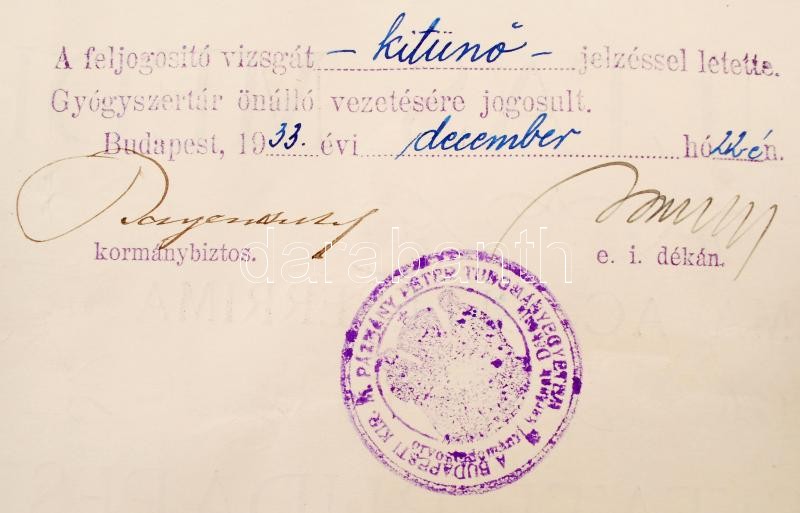 A feljogositó vizsgát – kitünő – jelzéssel letette.
Gyógyszertár önálló vezetésére jogosult.
Budapest, 1933. évi december hó 22-én.
kormánybiztos.
e. i. dékán.
A BUDAPESTI KIR. M. PÁZMÁNY PÉTER TUDOMÁNYEGYETEM
darabanth